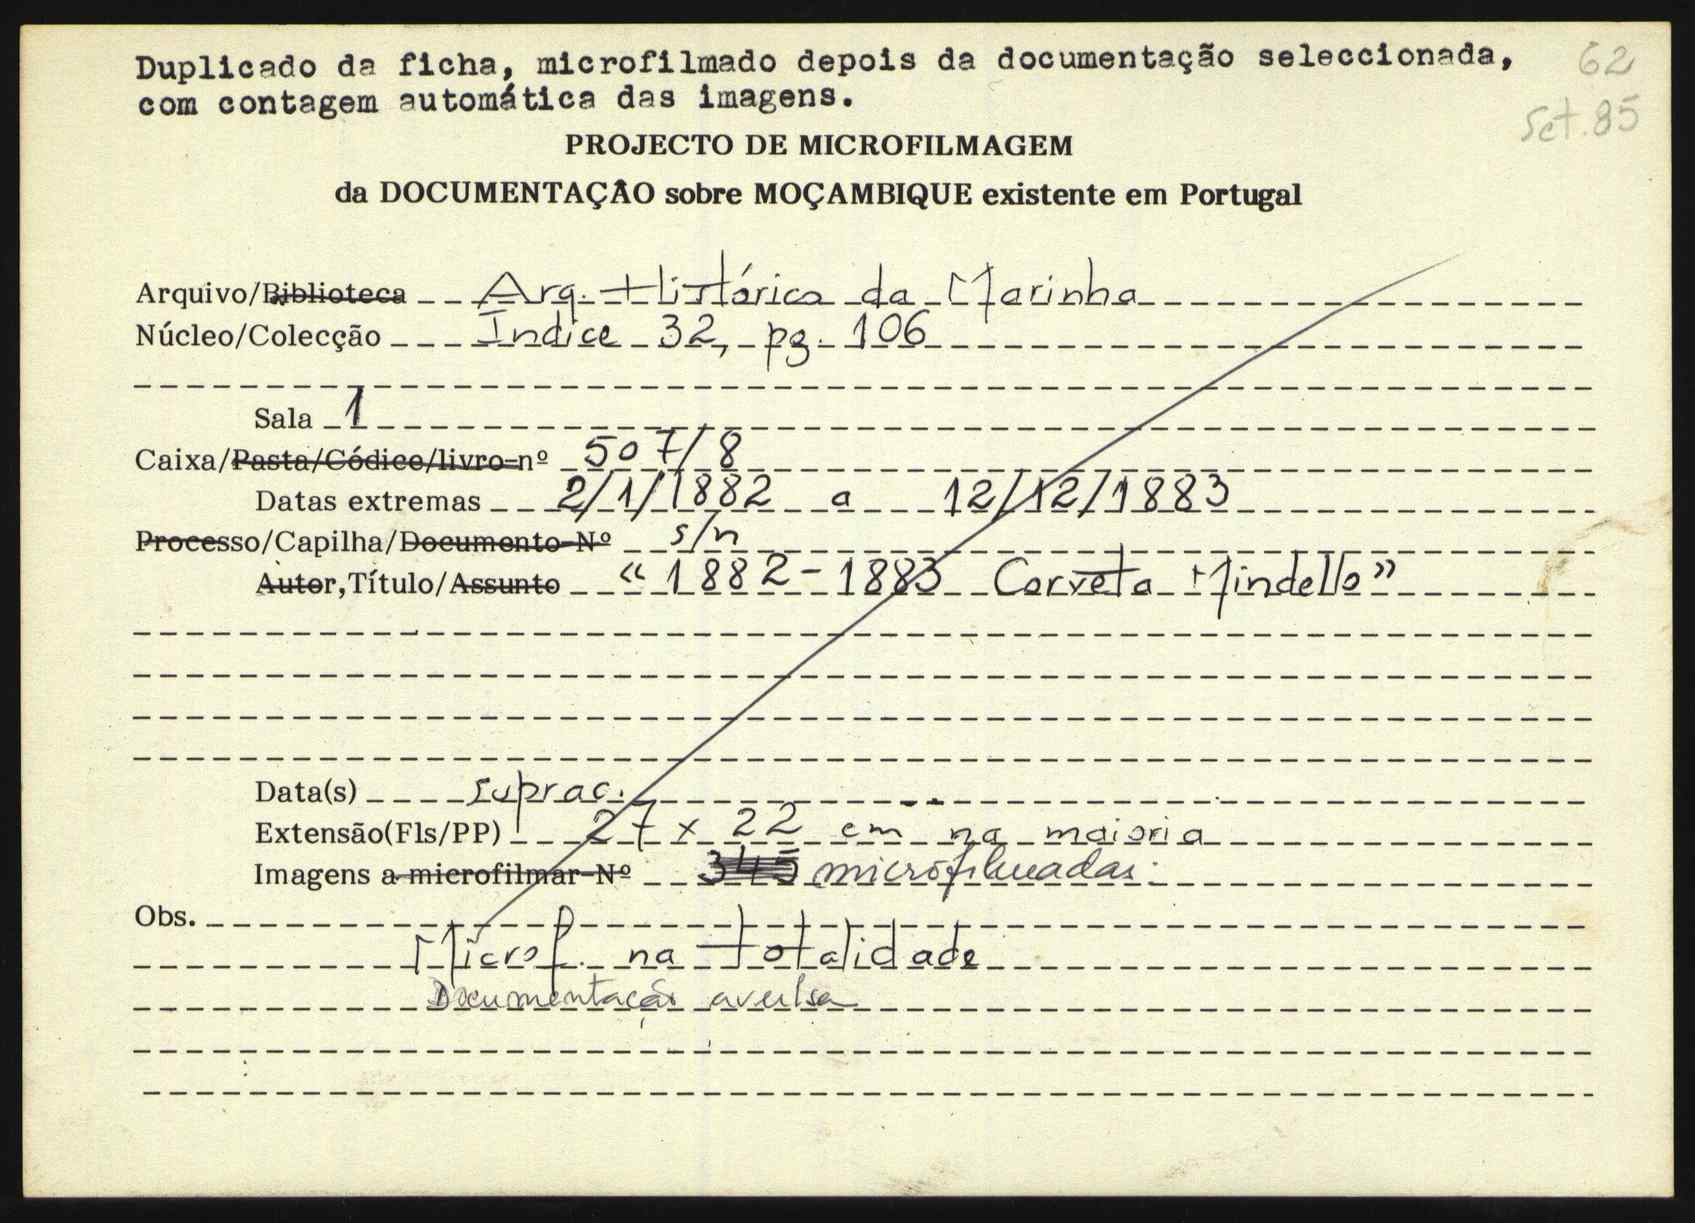 Duplicado da ficha, microfilmado depois da documentação seleccionada,
com contagem automática das imagens.
62
Set. 85
PROJECTO DE MICROFILMAGEM
da DOCUMENTAÇÃO sobre MOÇAMBIQUE existente em Portugal
Arquivo/Biblioteca Arq. Histórico da Marinha
Núcleo/Colecção Indice 32, pg. 106
Sala 1
Caixa/Pasta/Códice/livro-nº 507/8
Datas extremas 2/1/1882 a 12/12/1883
Processo/Capilha/Documento-Nº s/n
Autor,Título/Assunto «1882-1883 Corveta Mindello»
Data(s) suprac.
Extensão(Fls/PP) 27 x 22 cm na maioria
Imagens a microfilmar-Nº 345 microfilmadas.
Obs.
Microf. na totalidade
Documentação avulsa